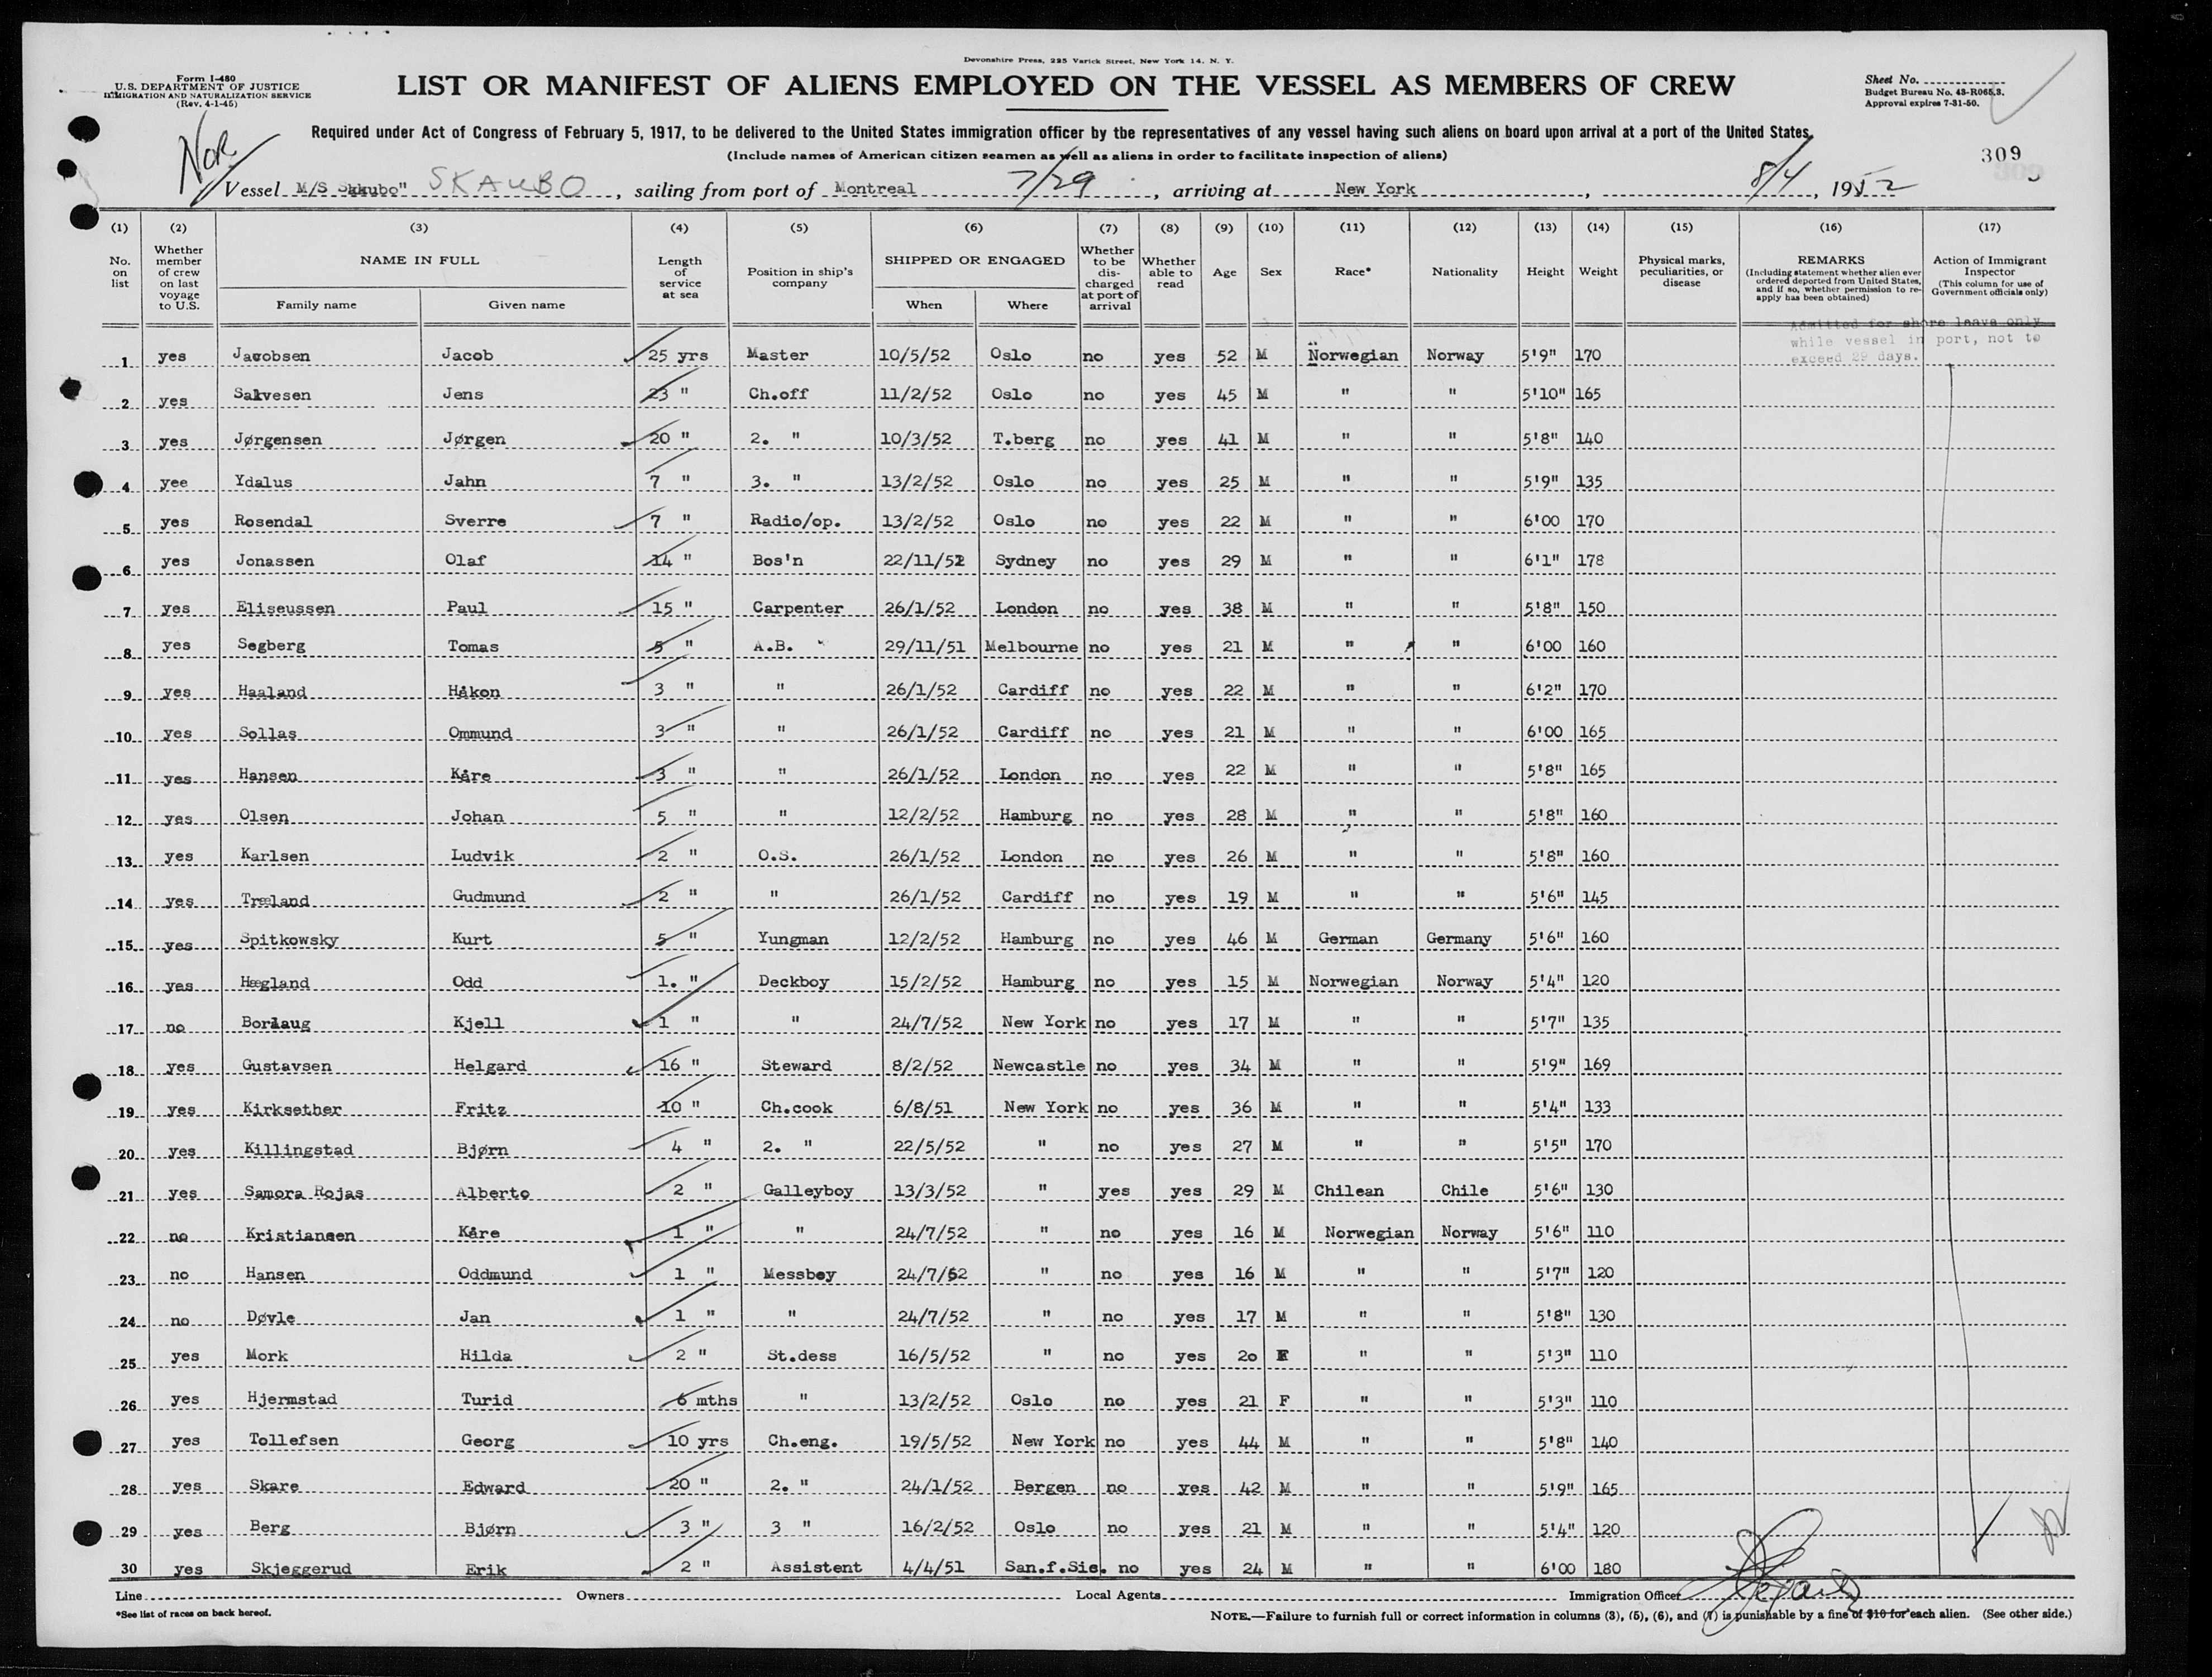 Devonshire Press, 225 Varick Street, New York 14, N. Y.
Form I-480
U.S. DEPARTMENT OF JUSTICE
IMMIGRATION AND NATURALIZATION SERVICE
(Rev. 4-1-45)
LIST OR MANIFEST OF ALIENS EMPLOYED ON THE VESSEL AS MEMBERS OF CREW
Sheet No.
Budget Bureau No. 43-R065.3.
Approval expires 7-31-50.
Required under Act of Congress of February 5, 1917, to be delivered to the United States immigration officer by the representatives of any vessel having such aliens on board upon arrival at a port of the United States
(Include names of American citizen seamen as well as aliens in order to facilitate inspection of aliens)
309
Nor
Vessel M/S Skkubo" SKAUBO, sailing from port of Montreal 7/29, arriving at New York, 8/4, 1952
(1) (2) (3) (4) (5) (6) (7) (8) (9) (10) (11) (12) (13) (14) (15) (16) (17)
No. on list
Whether member of crew on last voyage to U.S.
NAME IN FULL
Family name Given name
Length of service at sea
Position in ship's company
SHIPPED OR ENGAGED
When Where
Whether to be discharged at port of arrival
Whether able to read
Age Sex Race* Nationality Height Weight
Physical marks, peculiarities, or disease
REMARKS
(Including statement whether alien ever ordered deported from United States, and if so, whether permission to reapply has been obtained)
Action of Immigrant Inspector
(This column for use of Government officials only)
Admitted for shore leave only
while vessel in port, not to
exceed 29 days.
1 yes Jacobsen Jacob 25 yrs Master 10/5/52 Oslo no yes 52 M Norwegian Norway 5'9" 170
2 yes Salvesen Jens 23 " Ch.off 11/2/52 Oslo no yes 45 M " " 5'10" 165
3 yes Jørgensen Jørgen 20 " 2. " 10/3/52 T.berg no yes 41 M " " 5'8" 140
4 yee Ydalus Jahn 7 " 3. " 13/2/52 Oslo no yes 25 M " " 5'9" 135
5 yes Rosendal Sverre 7 " Radio/op. 13/2/52 Oslo no yes 22 M " " 6'00 170
6 yes Jonassen Olaf 14 " Bos'n 22/11/52 Sydney no yes 29 M " " 6'1" 178
7 yes Eliseussen Paul 15 " Carpenter 26/1/52 London no yes 38 M " " 5'8" 150
8 yes Segberg Tomas 5 " A.B. 29/11/51 Melbourne no yes 21 M " " 6'00 160
9 yes Haaland Håkon 3 " " 26/1/52 Cardiff no yes 22 M " " 6'2" 170
10 yes Sollas Ommund 3 " " 26/1/52 Cardiff no yes 21 M " " 6'00 165
11 yes Hansen Kåre 3 " " 26/1/52 London no yes 22 M " " 5'8" 165
12 yes Olsen Johan 5 " " 12/2/52 Hamburg no yes 28 M " " 5'8" 160
13 yes Karlsen Ludvik 2 " O.S. 26/1/52 London no yes 26 M " " 5'8" 160
14 yes Træland Gudmund 2 " " 26/1/52 Cardiff no yes 19 M " " 5'6" 145
15 yes Spitkowsky Kurt 5 " Yungman 12/2/52 Hamburg no yes 46 M German Germany 5'6" 160
16 yes Hægland Odd 1. " Deckboy 15/2/52 Hamburg no yes 15 M Norwegian Norway 5'4" 120
17 no Borlaug Kjell 1 " " 24/7/52 New York no yes 17 M " " 5'7" 135
18 yes Gustavsen Helgard 16 " Steward 8/2/52 Newcastle no yes 34 M " " 5'9" 169
19 yes Kirksether Fritz 10 " Ch.cook 6/8/51 New York no yes 36 M " " 5'4" 133
20 yes Killingstad Bjørn 4 " 2. " 22/5/52 " no yes 27 M " " 5'5" 170
21 yes Samora Rojas Alberto 2 " Galleyboy 13/3/52 " yes yes 29 M Chilean Chile 5'6" 130
22 no Kristiansen Kåre 1 " " 24/7/52 " no yes 16 M Norwegian Norway 5'6" 110
23 no Hansen Oddmund 1 " Messboy 24/7/52 " no yes 16 M " " 5'7" 120
24 no Døvle Jan 1 " " 24/7/52 " no yes 17 M " " 5'8" 130
25 yes Mork Hilda 2 " St.dess 16/5/52 " no yes 20 F " " 5'3" 110
26 yes Hjermstad Turid 6 mths " 13/2/52 Oslo no yes 21 F " " 5'3" 110
27 yes Tollefsen Georg 10 yrs Ch.eng. 19/5/52 New York no yes 44 M " " 5'8" 140
28 yes Skare Edward 20 " 2. " 24/1/52 Bergen no yes 42 M " " 5'9" 165
29 yes Berg Bjørn 3 " 3 " 16/2/52 Oslo no yes 21 M " " 5'4" 120
30 yes Skjeggerud Erik 2 " Assistent 4/4/51 San.f.Sis. no yes 24 M " " 6'00 180
Line Owners Local Agents Immigration Officer
*See list of races on back hereof.
NOTE.—Failure to furnish full or correct information in columns (3), (5), (6), and (7) is punishable by a fine of $10 for each alien. (See other side.)